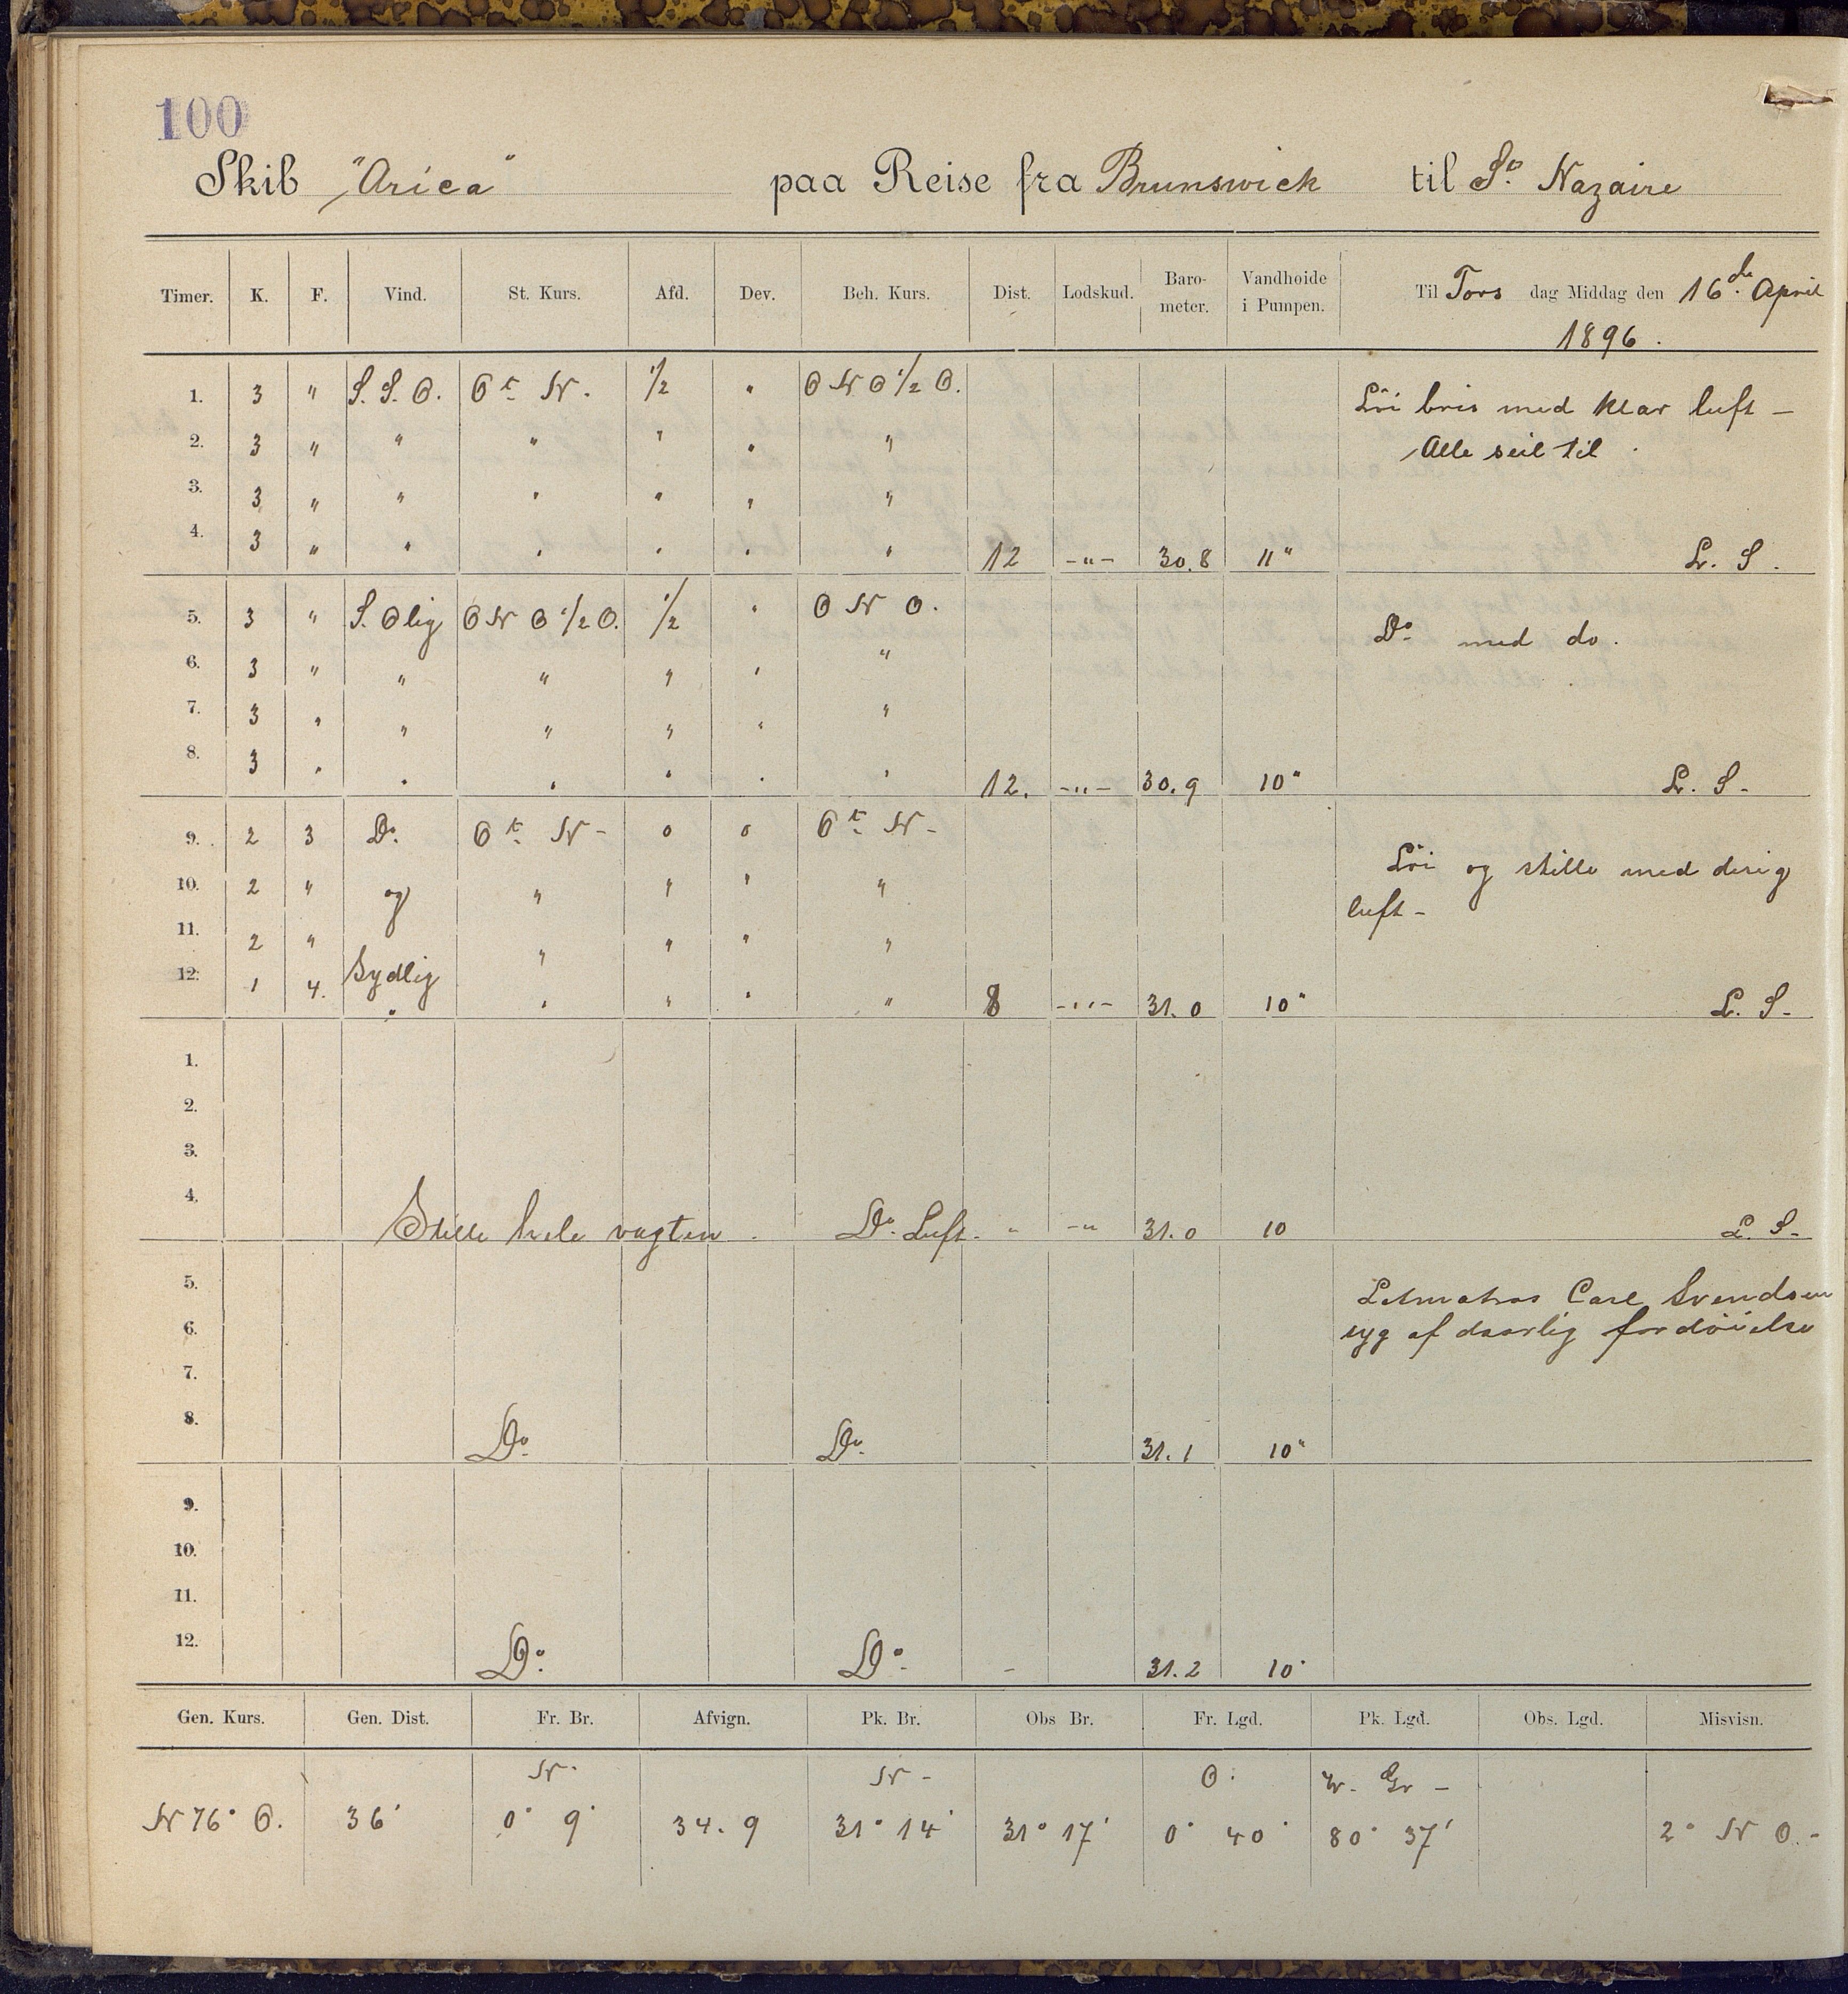 100
Skib "Arica" paa Reise fra Brunswick til St. Nazaire
Timer. K. F. Vind. St. Kurs. Afd. Dev. Beh. Kurs. Dist. Lodskud. Baro-meter. Vandhoide i Pumpen. Til Tors dag Middag den 16de April
1896.
1. 3 " S. S. O. O t. N. 1/2 " O N O 1/2 O. Löi bris med klar luft –
2. 3 " " " " " " Alle seil til
3. 3 " " " " " "
4. 3 " " " " " " 12 -"- 30.8 11" L. S.
5. 3 " S. Olig O N O 1/2 O. 1/2 " O N O. Do. med do.
6. 3 " " " " " "
7. 3 " " " " " "
8. 3 " " " " " " 12. -"- 30.9 10" L. S-
9. 2 3 Do. O t. N- 0 0 O t. N-
Löi og stille med disig
10. 2 " og " " " "
luft-
11. 2 " " " " "
12. 1 4. Sydlig " " " " " 8 -"- 31.0 10" L. S-
1.
2.
3.
4. Stille hele vagten. Do. Luft. " -" 31.0 10 L. S-
5. Letmatros Carl Svendsen
6. syg af daarlig fordöielse
7.
8. Do. Do. 31.1 10"
9.
10.
11.
12. Do. Do. - 31.2 10"
Gen. Kurs. Gen. Dist. Fr. Br. Afvign. Pk. Br. Obs Br. Fr. Lgd. Pk. Lgd. Obs. Lgd. Misvisn.
N. N- O. W. Gr-
N 76° O. 36' 0° 9' 34.9 31° 14' 31° 17' 0° 40' 80° 37' 2° N O.-